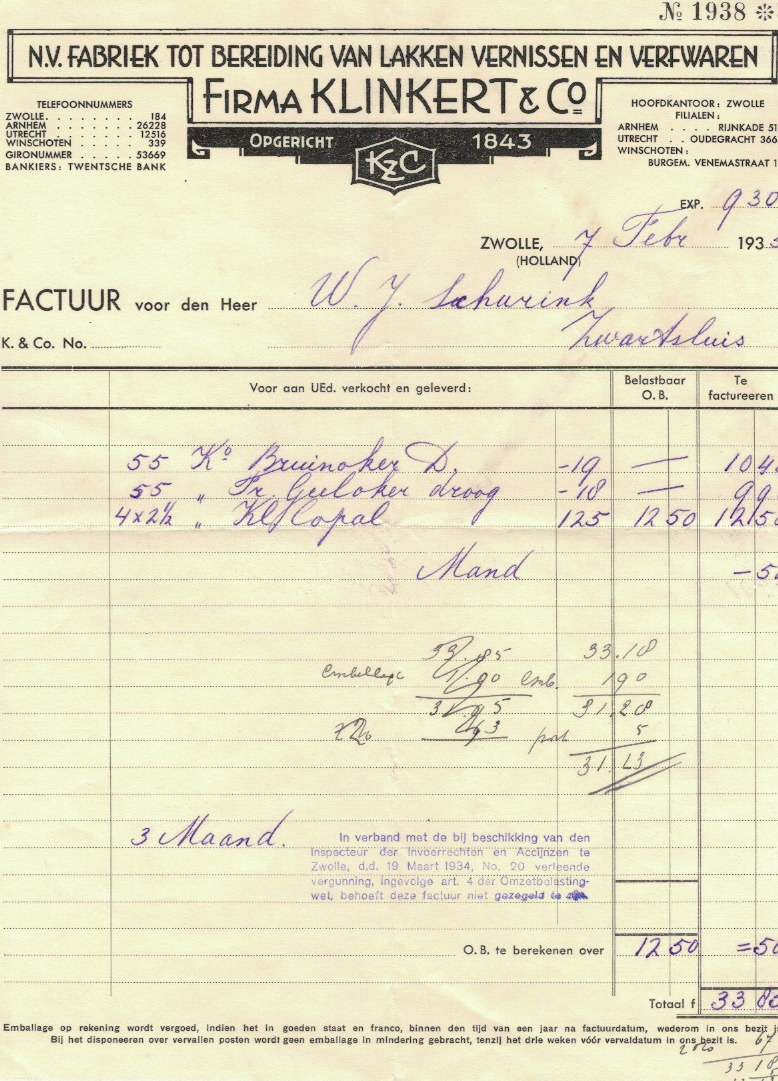 № 1938
N.V. FABRIEK TOT BEREIDING VAN LAKKEN VERNISSEN EN VERFWAREN
FIRMA KLINKERT & Co
OPGERICHT 1843
KZC
TELEFOONNUMMERS
ZWOLLE. . . . . . . 184
ARNHEM . . . . . . 26228
UTRECHT . . . . . . 12516
WINSCHOTEN . . . . 339
GIRONUMMER . . . . . 53669
BANKIERS: TWENTSCHE BANK
HOOFDKANTOOR: ZWOLLE
FILIALEN:
ARNHEM . . . . RIJNKADE 51
UTRECHT . . OUDEGRACHT 366
WINSCHOTEN:
BURGEM. VENEMASTRAAT 1
EXP. 930
ZWOLLE, 7 Febr 193
(HOLLAND)
FACTUUR voor den Heer W. J. Schurink
K. & Co. No. Zwartsluis
Voor aan UEd. verkocht en geleverd: Belastbaar O.B. Te factureeren
55 Ko Bruinoker D. -19 — 104
55 „ Fr. Geeloker droog -18 — 99
4x2½ „ Kl. Copal 125 1250 1250
Mand -50
33.18
Emballage 1.90 emb. 190
31.28
5
31.23
3 Maand.
In verband met de bij beschikking van den
Inspecteur der Invoerrechten en Accijnzen te
Zwolle, d.d. 19 Maart 1934, No. 20 verleende
vergunning, ingevolge art. 4 der Omzetbelasting-
wet, behoeft deze factuur niet gezegeld te zijn
O.B. te berekenen over 1250 =50
Totaal f 33 85
Emballage op rekening wordt vergoed, indien het in goeden staat en franco, binnen den tijd van een jaar na factuurdatum, wederom in ons bezit is
Bij het disponeeren over vervallen posten wordt geen emballage in mindering gebracht, tenzij het drie weken vóór vervaldatum in ons bezit is.
2% 67
33 18